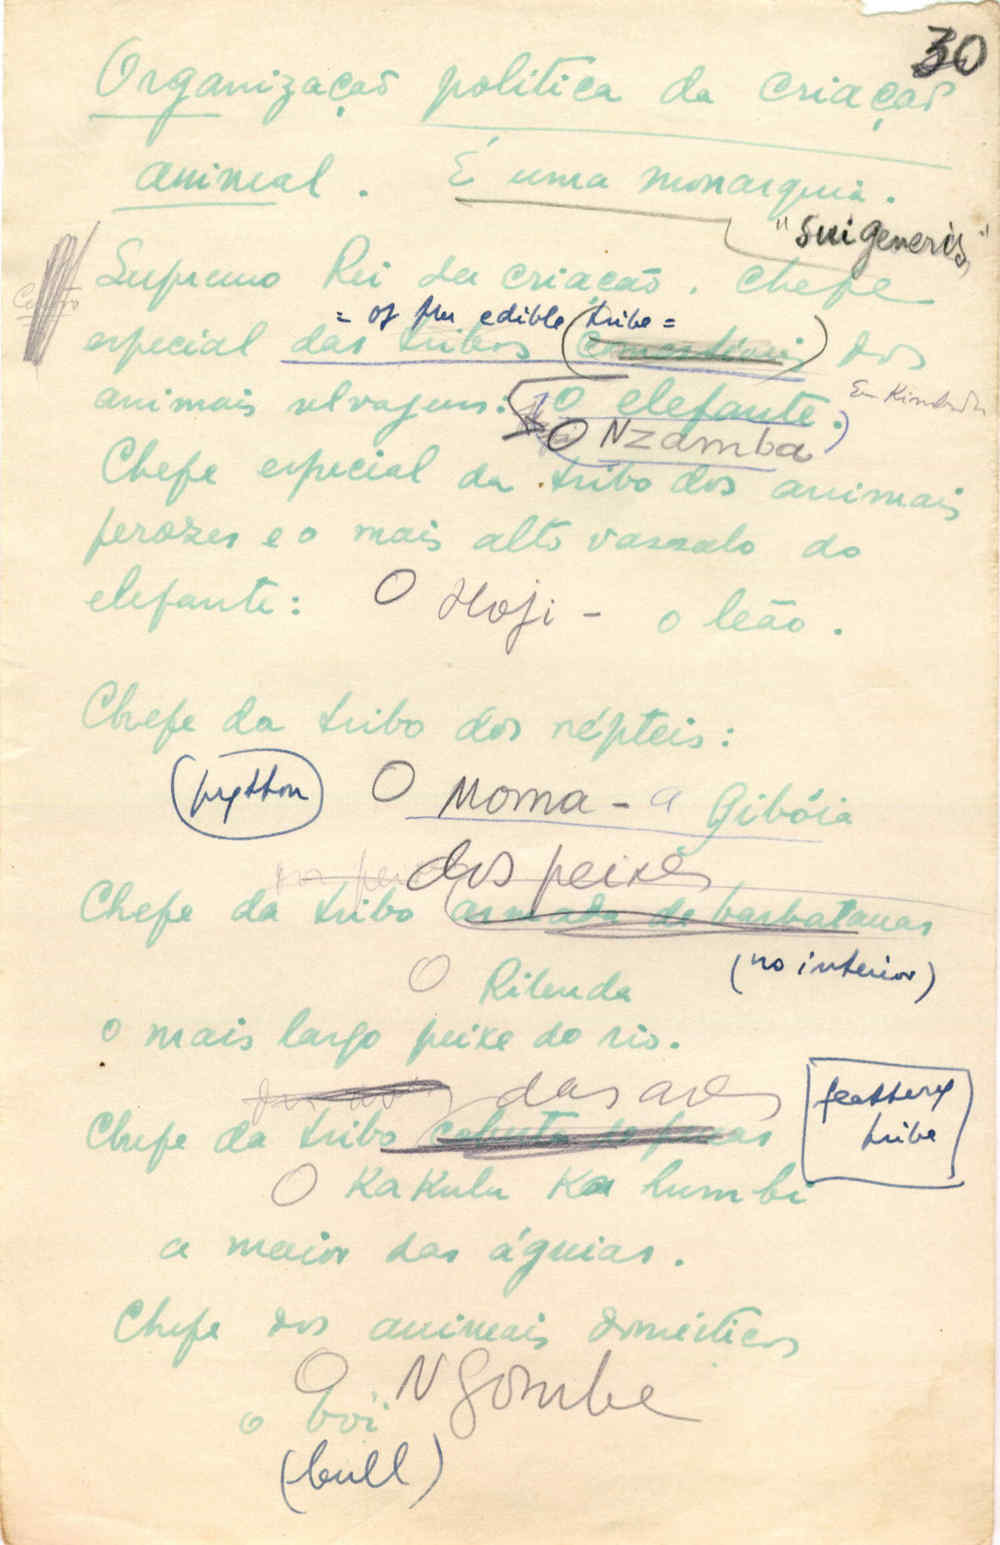 30
Organização politica da criação
animal. É uma monarquia.
"sui generis"
Supremo Rei da criação. Chefe
= of the edible tribe =
especial das tribos (comestíveis) dos
animais selvagens: O elefante.
Em Kimbundu
O Nzamba
Chefe especial da tribo dos animais
ferozes e o mais alto vassalo do
elefante: O Hoji - o leão.
Chefe da tribo dos répteis:
(python) O Moma - a Gibóia
dos peixes
Chefe da tribo armada de barbatanas
(no interior)
O Rilenda
o mais largo peixe do rio.
das aves
feathery
tribe
Chefe da tribo coberta de penas
O Kakulu Ka humbi
a maior das águias.
Chefe dos animais domésticos
O Ngombe
o boi
(bull)